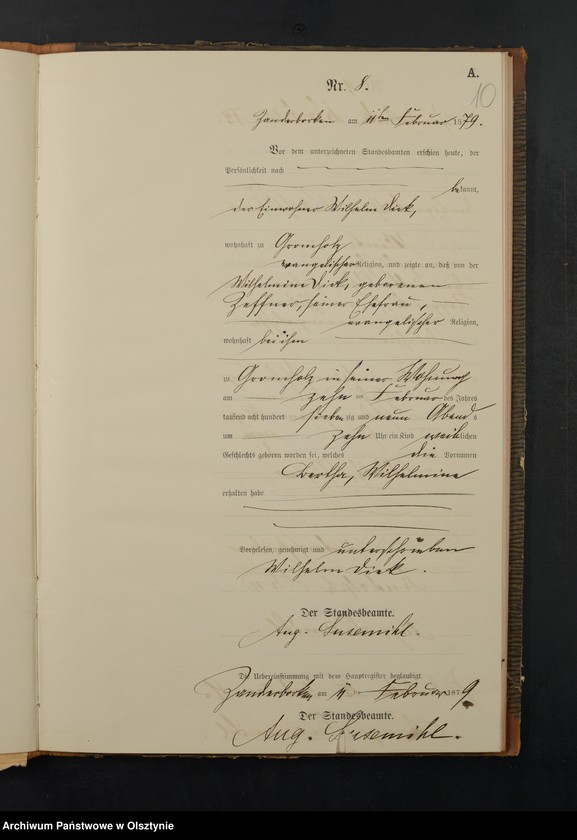 A.
10
Nr. 8.
Zanderborken am 11ten Februar 1879.
Vor dem unterzeichneten Standesbeamten erschien heute, der
Persönlichkeit nach
bekannt,
der Einwohner Wilhelm Dick,
wohnhaft zu Gromholz
evangelischer Religion, und zeigte an, daß von der
Wilhelmine Dick, geborenen
Zeffner, seiner Ehefrau,
evangelischer Religion,
wohnhaft bei ihm
zu Gromholz in seiner Wohnung
am zehn ten Februar des Jahres
tausend acht hundert siebenzig und neun Abends
um zehn Uhr ein Kind weiblichen
Geschlechts geboren worden sei, welches die Vornamen
Bertha, Wilhelmine
erhalten habe
Vorgelesen, genehmigt und unterschrieben
Wilhelm Dick.
Der Standesbeamte.
Aug. Susemihl.
Die Uebereinstimmung mit dem Hauptregister beglaubigt.
Zanderborken am 11 ten Februar 1879
Der Standesbeamte.
Aug. Susemihl.
Archiwum Państwowe w Olsztynie